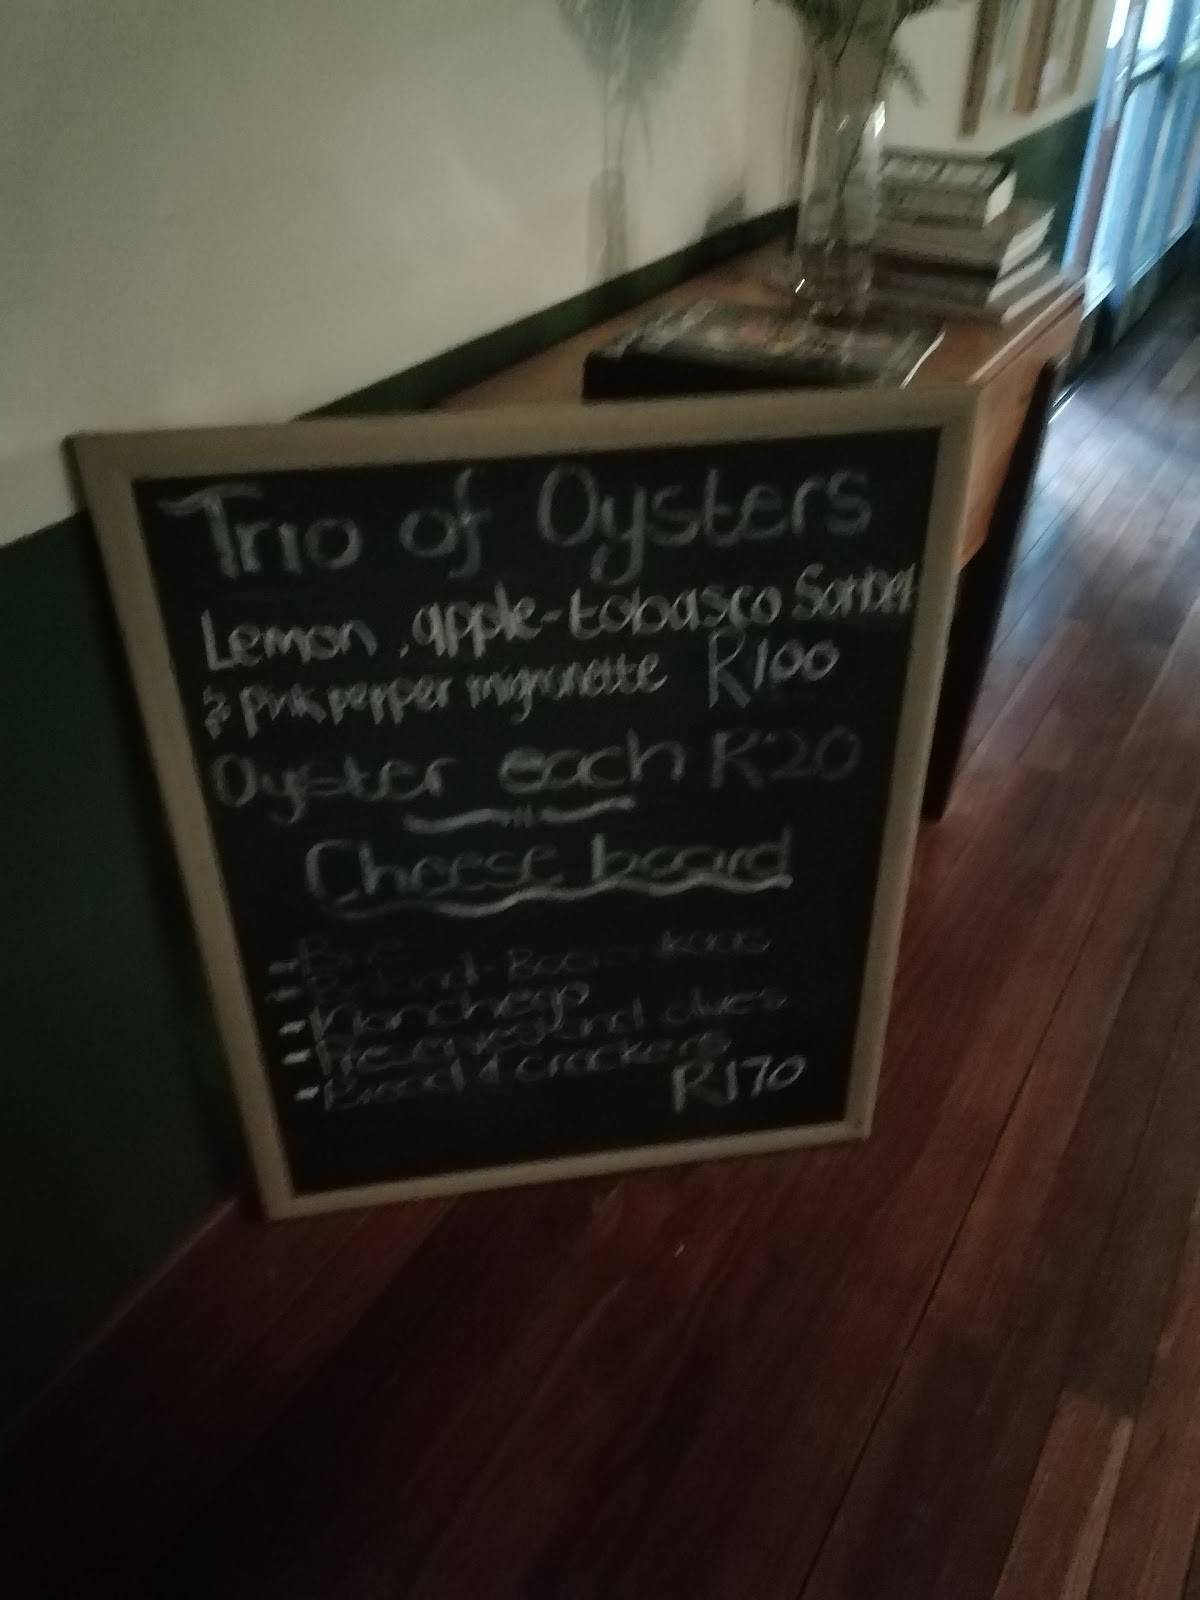 Trio of Oysters
Lemon, apple-tobasco Sorbet
& pink pepper mignonette R100
Oyster each R20
Cheese board
- Brie
- Boerenkaas
- Manchego
- Preserves and olives
- Bread & crackers
R170